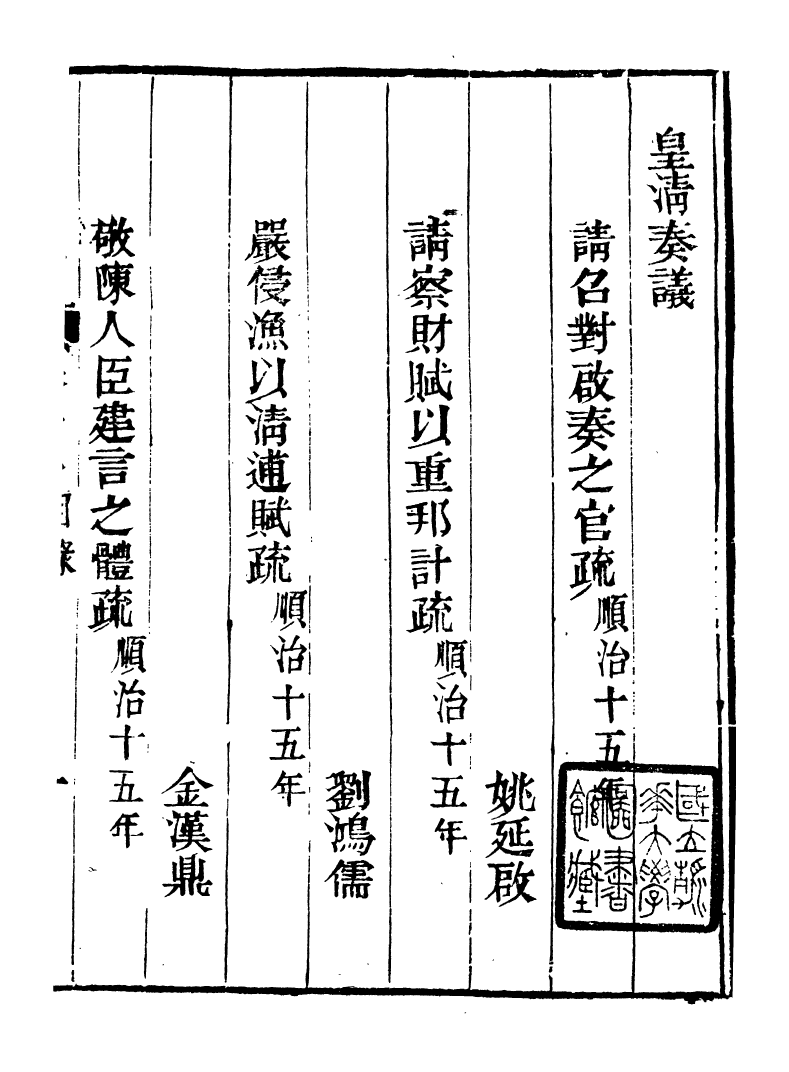 皇淸奏議
請召對啟奏之官疏 順治十五年
姚延啟
請察財賦以重邦計疏 順治十五年
劉鴻儒
嚴侵漁以淸逋賦疏 順治十五年
金漢鼎
敬陳人臣建言之體疏 順治十五年
目錄
一
國立清
華大學
圖書
館藏